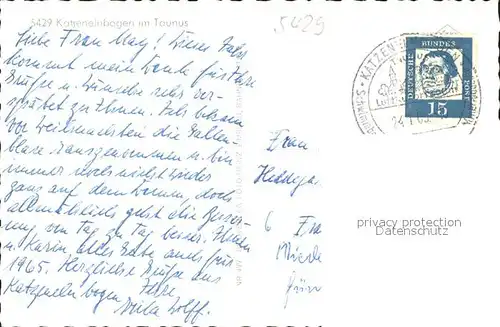 5429 Katzenelnbogen im Taunus
5429
Liebe Frau May! Dieses Jahr
kommt mein Dank für Ihre
Grüße u. Wünsche sehr ver-
spätet zu Ihnen. Ich bekam
vor Weihnachten die Gallen-
blase rausgenommen u. bin
immer noch nicht wieder
ganz auf dem Damm, doch
allmählich geht die Besser-
ung von Tag zu Tag besser. Ihnen
u. Karin alles Gute auch für
1965. Herzliche Grüße aus
Katzenelnbogen Ihre
Wolff.
Frau
6 Fra
für
DEUTSCHE
BUNDES
POST
15
KATZEN
privacy protection
Datenschutz